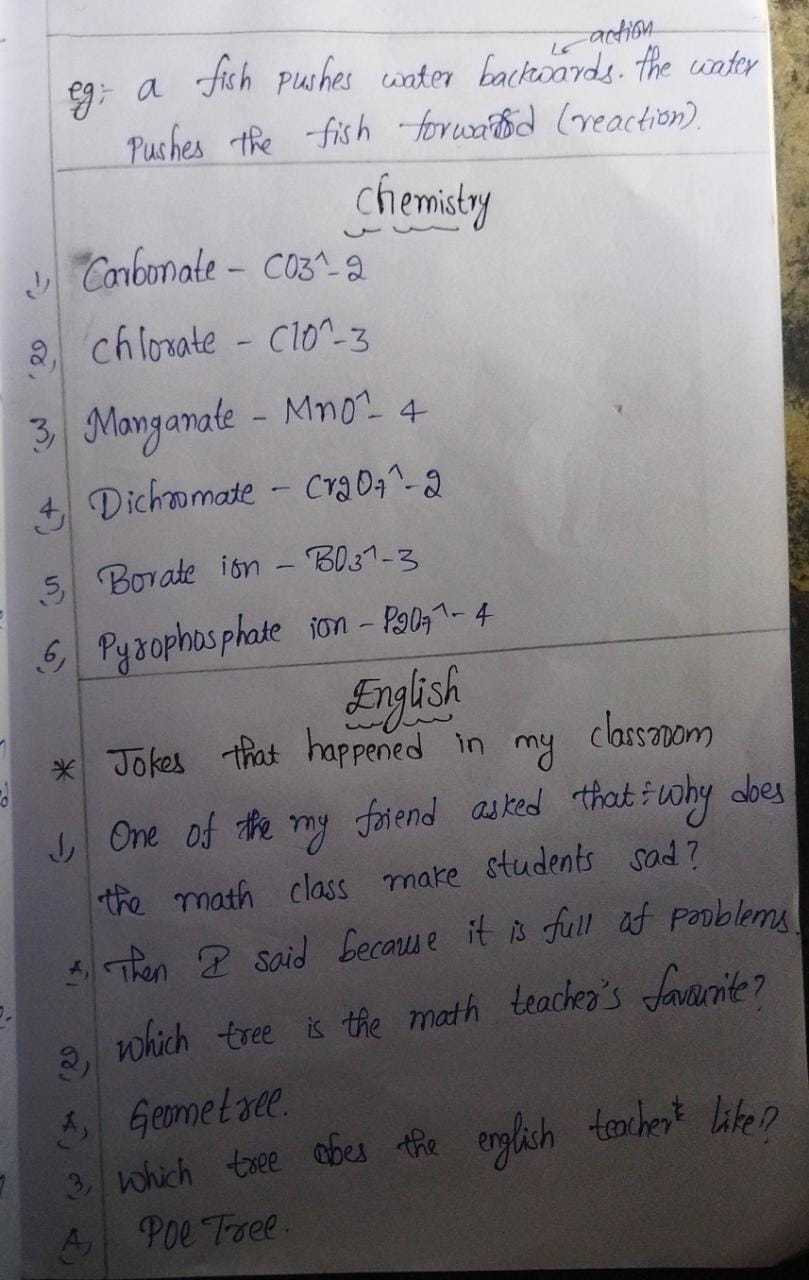 action
eg:- a fish pushes water backwards. the water
Pushes the fish forward (reaction).
Chemistry
1, Carbonate - CO3^-2
2, Chlorate - ClO^-3
3, Manganate - MnO^- 4
4, Dichromate - Cr2O7^-2
5, Borate ion - BO3^-3
6, Pyrophosphate ion - P2O7^- 4
English
* Jokes that happened in my classroom
1, One of the my friend asked that :- why does
the math class make students sad?
A, Then I said because it is full of problems.
2, Which tree is the math teacher's favourite?
A, Geometree.
3, Which tree does the english teacher like?
A, Poe Tree.